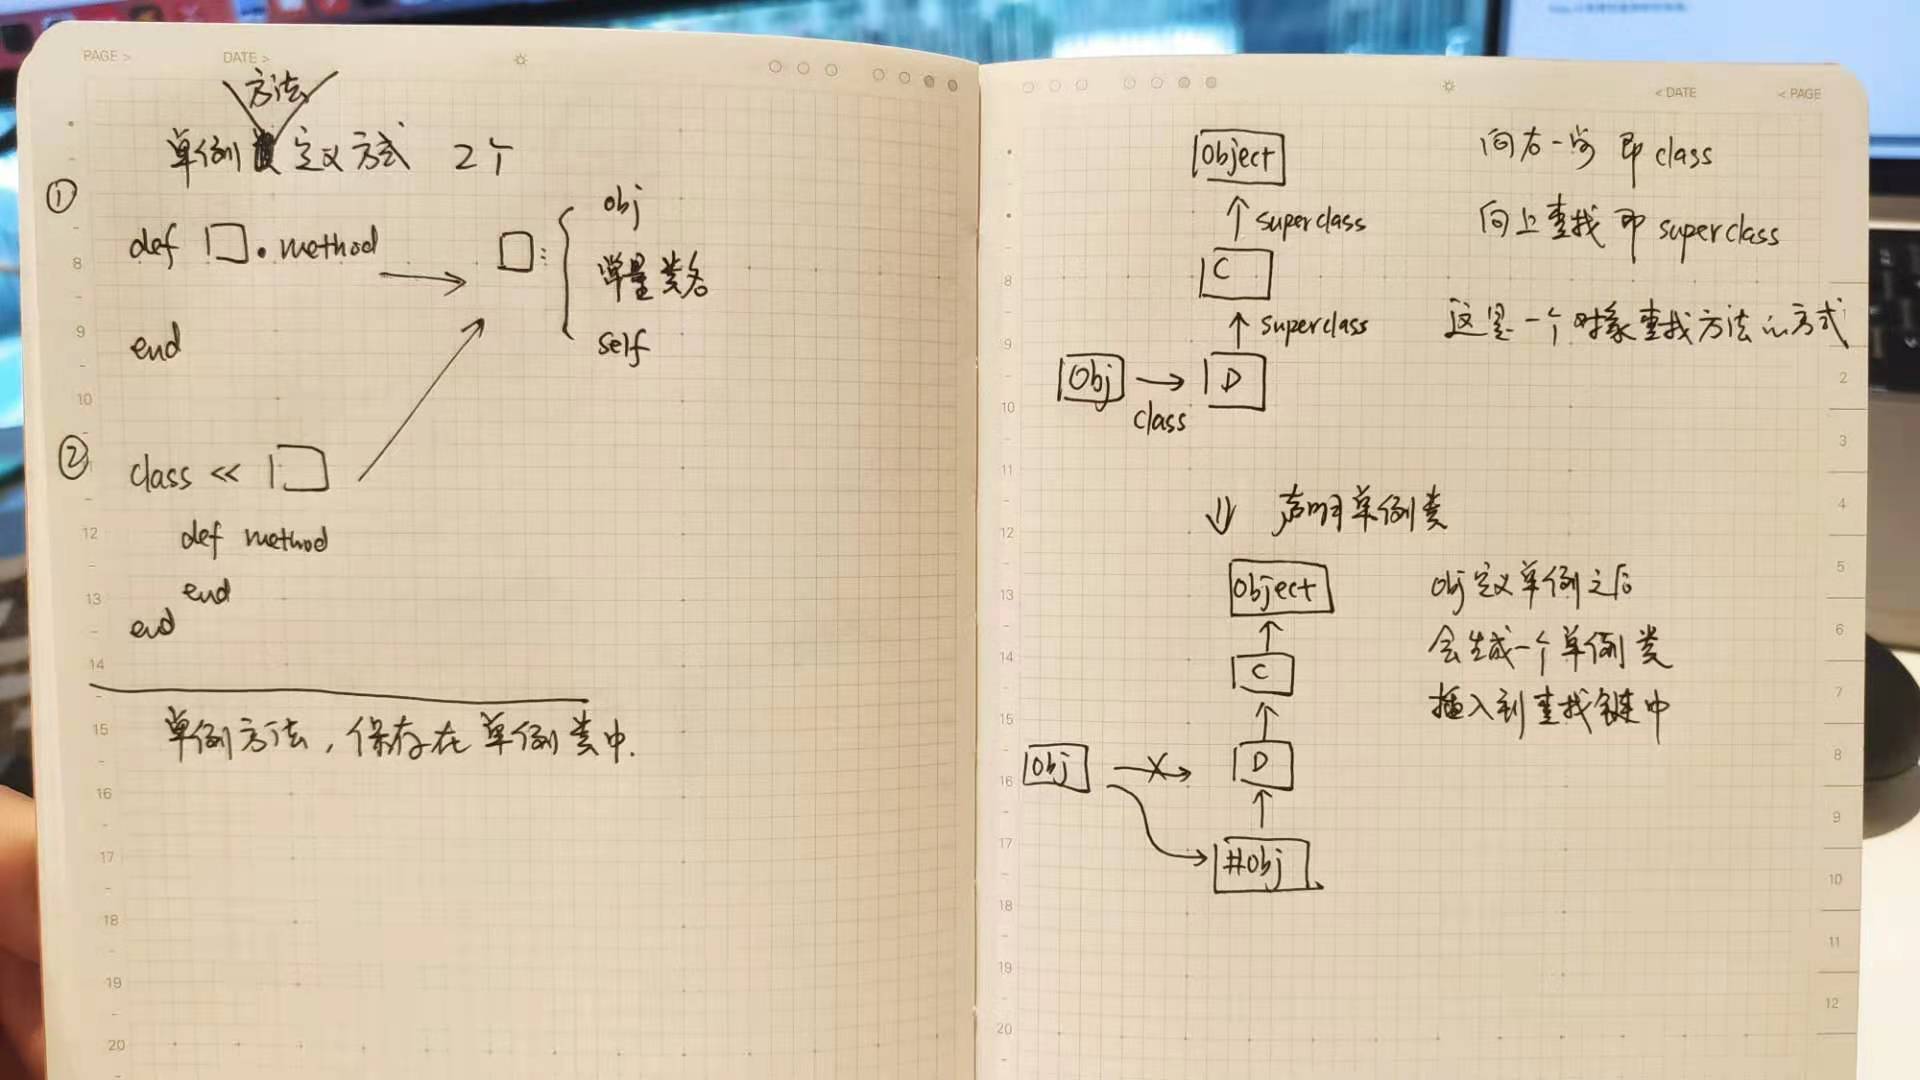 PAGE >
DATE >
方法
单例定义方式 2个
①
def □.method
end
□:
obj
类名
self
②
class << □
def method
end
end
单例方法，保存在单例类中.
8
9
10
12
13
14
15
16
17
18
19
20
< DATE
< PAGE
Object
↑ superclass
C
↑ superclass
Obj → D
class
向右一步 即 class
向上查找 即 superclass
这是一个对象查找方法的方式
⇓ 声明单例类
Object
C
D
Obj
#Obj
Obj定义单例之后
会生成一个单例类
插入到查找键中
7
8
9
10
11
12
13
14
15
16
17
18
19
20
2
3
4
5
6
7
8
9
10
11
12